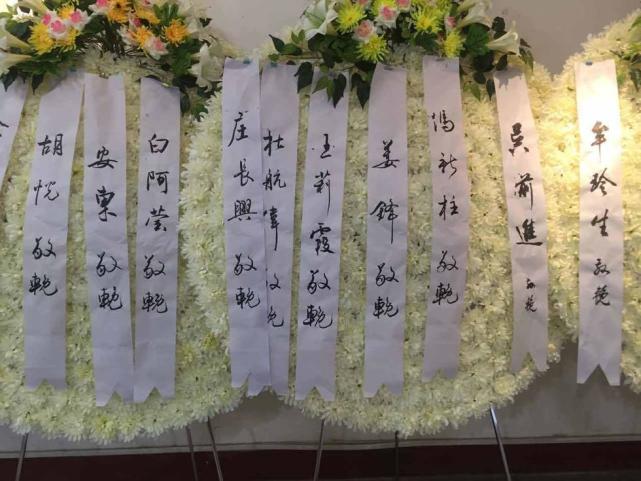 胡悦敬輓
安東敬輓
白阿莹敬輓
庄長興敬輓
杜航
王莉霞敬輓
姜鋒敬輓
馮新柱敬輓
吳前進敬輓
牟玲生敬挽